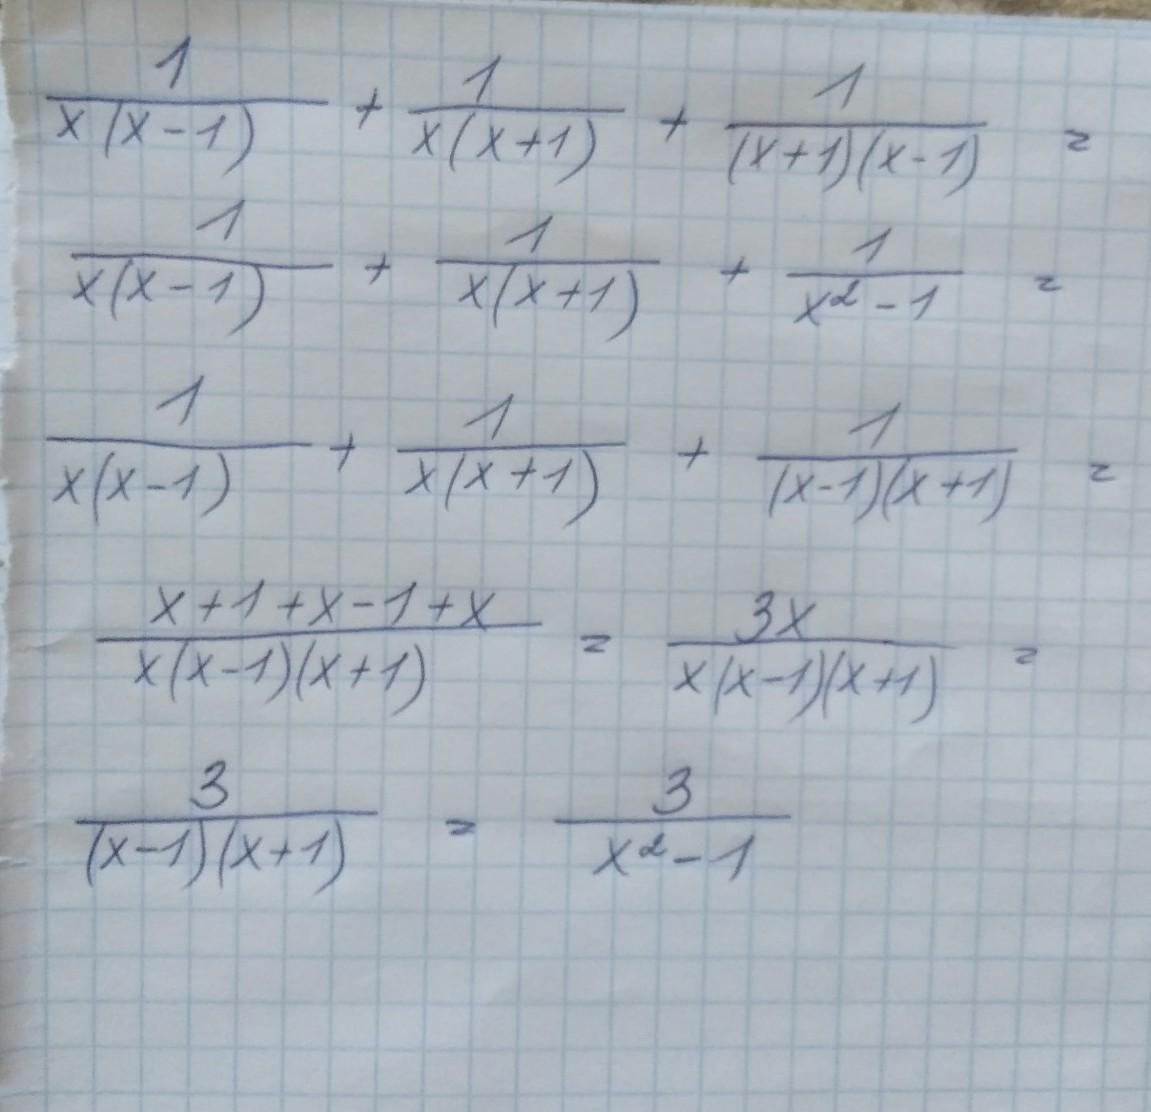 1/(x(x-1)) + 1/(x(x+1)) + 1/((x+1)(x-1)) =
1/(x(x-1)) + 1/(x(x+1)) + 1/(x²-1) =
1/(x(x-1)) + 1/(x(x+1)) + 1/((x-1)(x+1)) =
(x+1+x-1+x)/(x(x-1)(x+1)) = 3x/(x(x-1)(x+1)) =
3/((x-1)(x+1)) = 3/(x²-1)